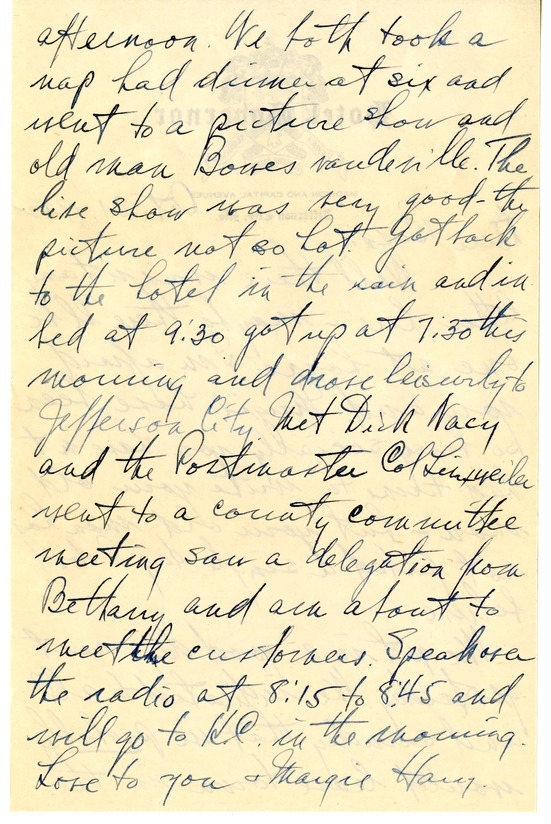 afternoon. We both took a
nap had dinner at six and
went to a picture show and
old man Bowes vaudeville. The
live show was very good - the
picture not so hot. Got back
to the hotel in the rain and in
bed at 9:30 got up at 7:30 this
morning and drove leisurely to
Jefferson City Met Dick Nacy
and the Postmaster Col Linxweiler
went to a county committee
meeting saw a delegation from
Bethany and am about to
meet the customers. Speak over
the radio at 8:15 to 8:45 and
will go to K.C. in the morning.
Love to you & Margie Harry.